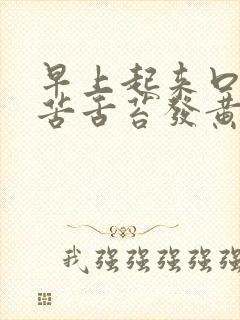 早上起来口
苦舌苔發黄
我强强强强